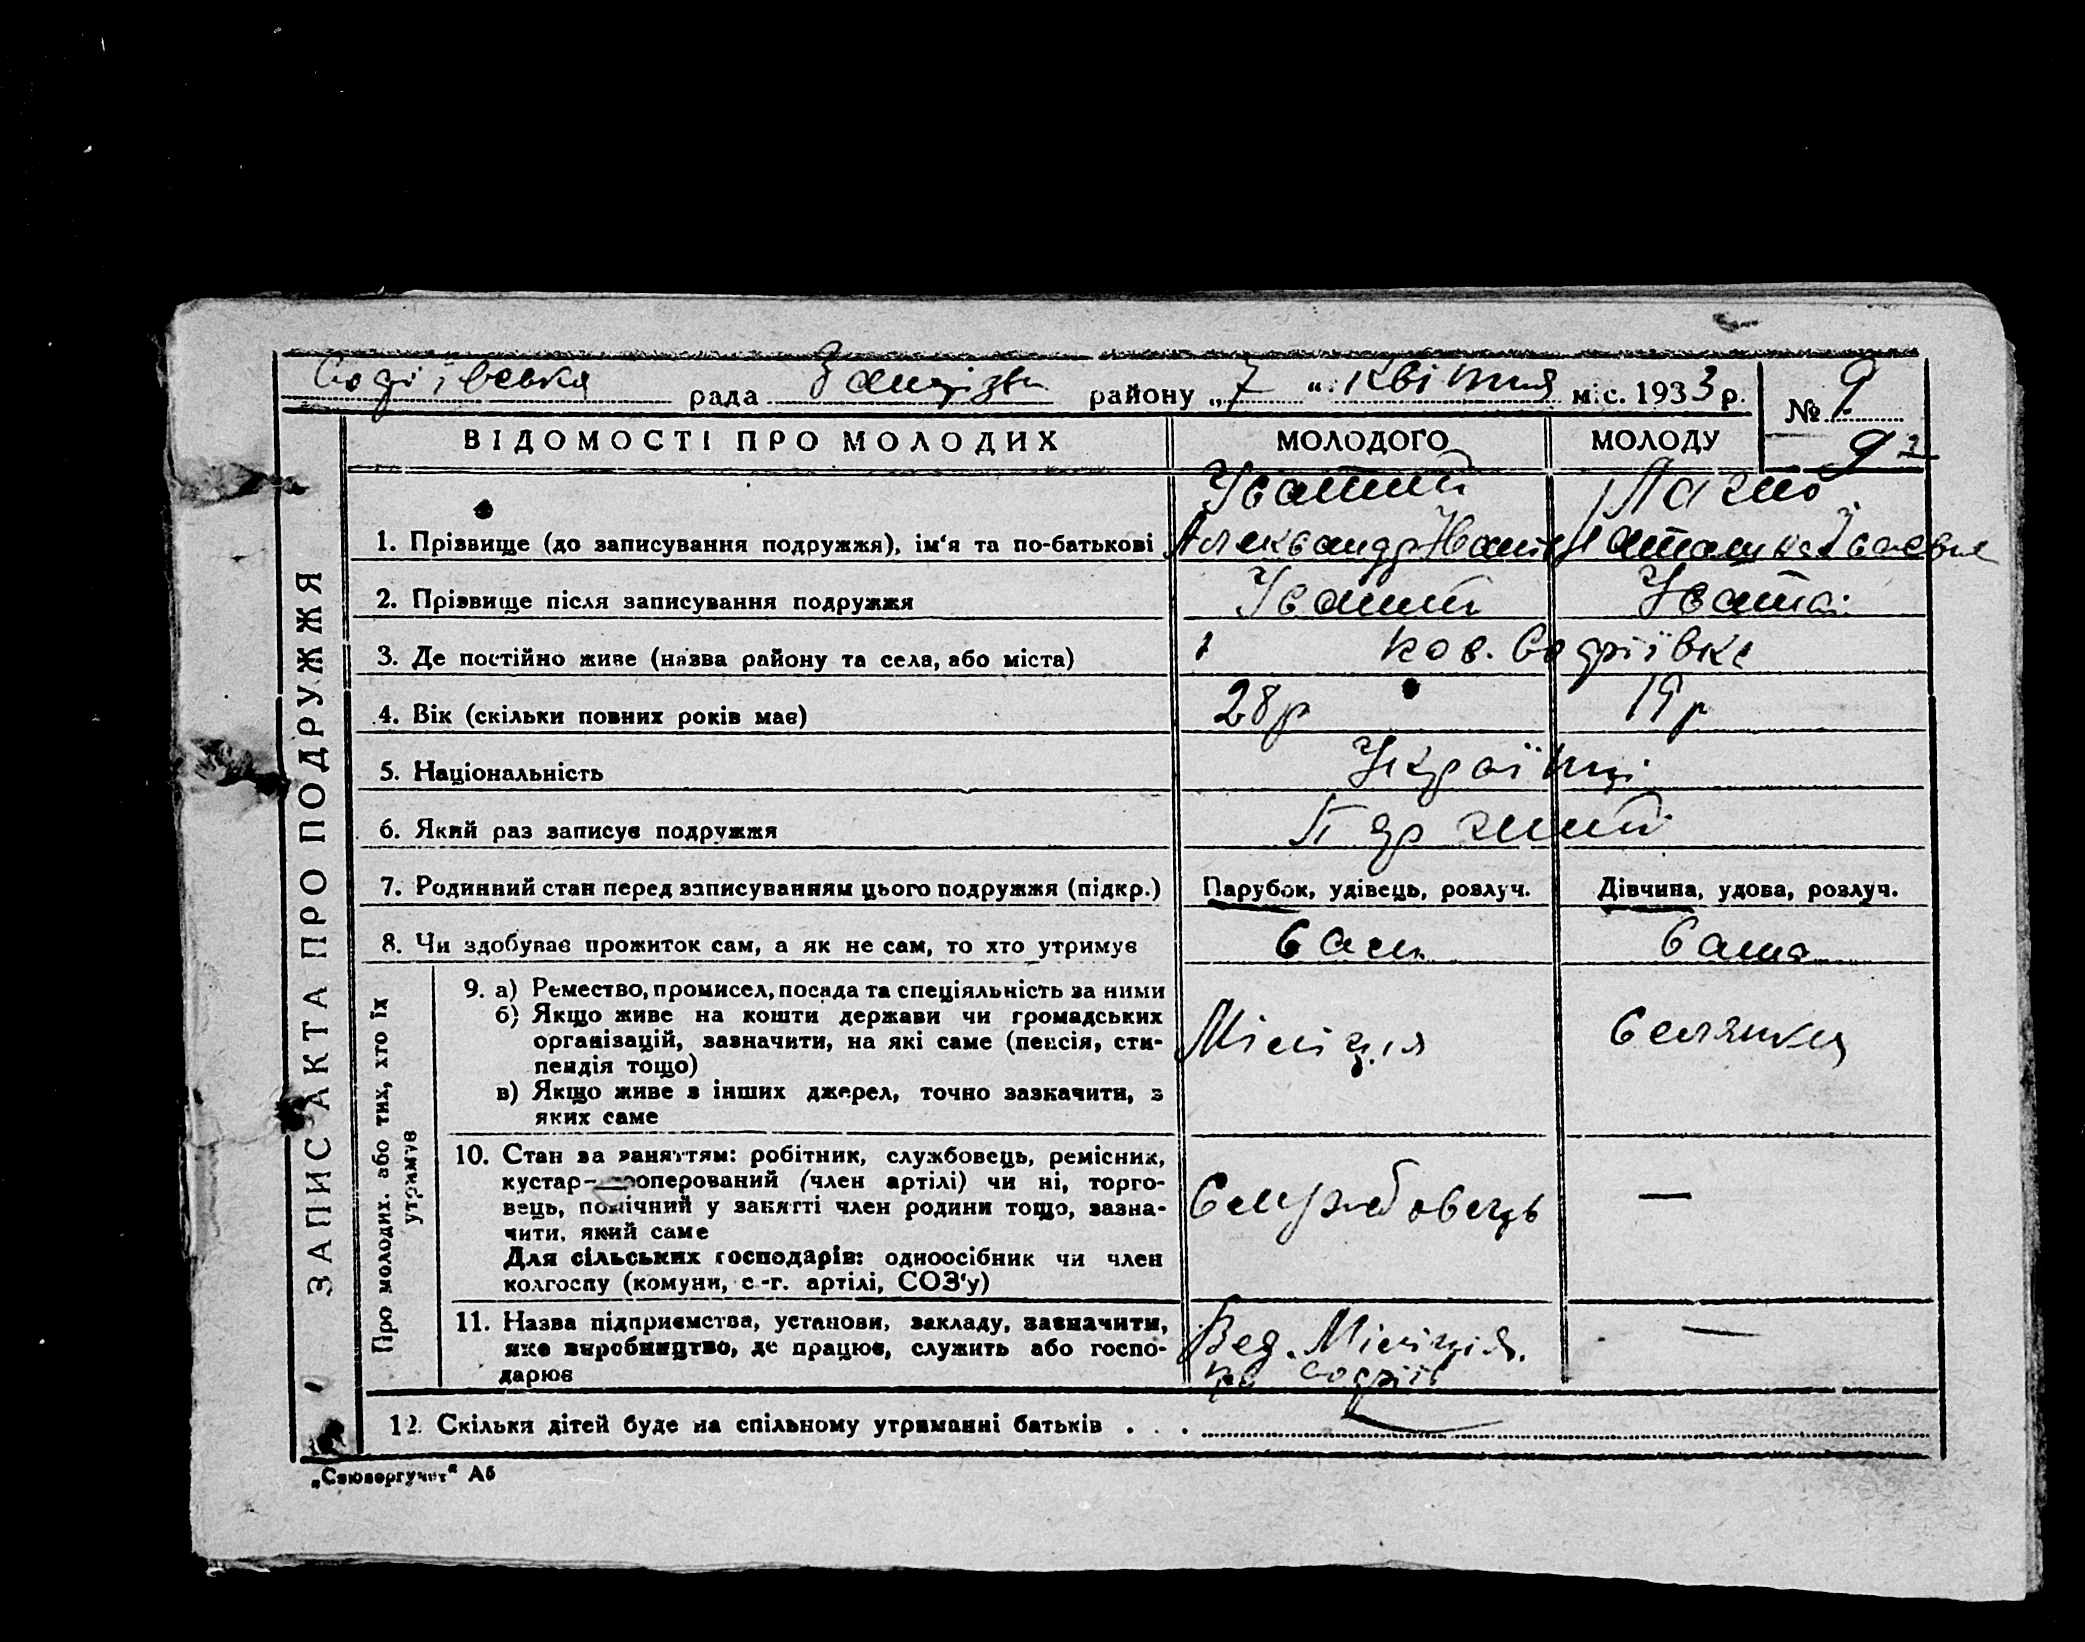 Софіївська рада району „7“ квітня міс. 1933 р. № 9
92
ВІДОМОСТІ ПРО МОЛОДИХ МОЛОДОГО МОЛОДУ
1. Прізвище (до записування подружжя), ім‘я та по-батькові Александр
2. Прізвище після записування подружжя
3. Де постійно живе (назва району та села, або міста) Софіївка
4. Вік (скільки повних років має) 28 р 19 р
5. Національність Українці
6. Який раз записує подружжя
7. Родинний стан перед записуванням цього подружжя (підкр.) Парубок, удівець, розлуч. Дівчина, удова, розлуч.
8. Чи здобуває прожиток сам, а як не сам, то хто утримує Сам Сама
ЗАПИС АКТА ПРО ПОДРУЖЖЯ
Про молодих, або тих, хто їх утримує
9. а) Ремество, промисел, посада та спеціяльність за ними
б) Якщо живе на кошти держави чи громадських
організацій, зазначити, на які саме (пенсія, сти-
пендія тощо)
в) Якщо живе з інших джерел, точно зазначити, з
яких саме
Міліція Селянка
10. Стан за заняттям: робітник, службовець, ремісник,
кустар-кооперований (член артілі) чи ні, торго-
вець, помічний у занятті член родини тощо, зазна-
чити, який саме
Для сільських господарів: одноосібник чи член
колгоспу (комуни, с.-г. артілі, СОЗ‘у)
Службовець —
11. Назва підприємства, установи, закладу, зазначити,
яке виробництво, де працює, служить або госпо-
дарює
Вед. Міліція. —
12. Скільки дітей буде на спільному утриманні батьків . . .
„Союзоргучет“ Аб